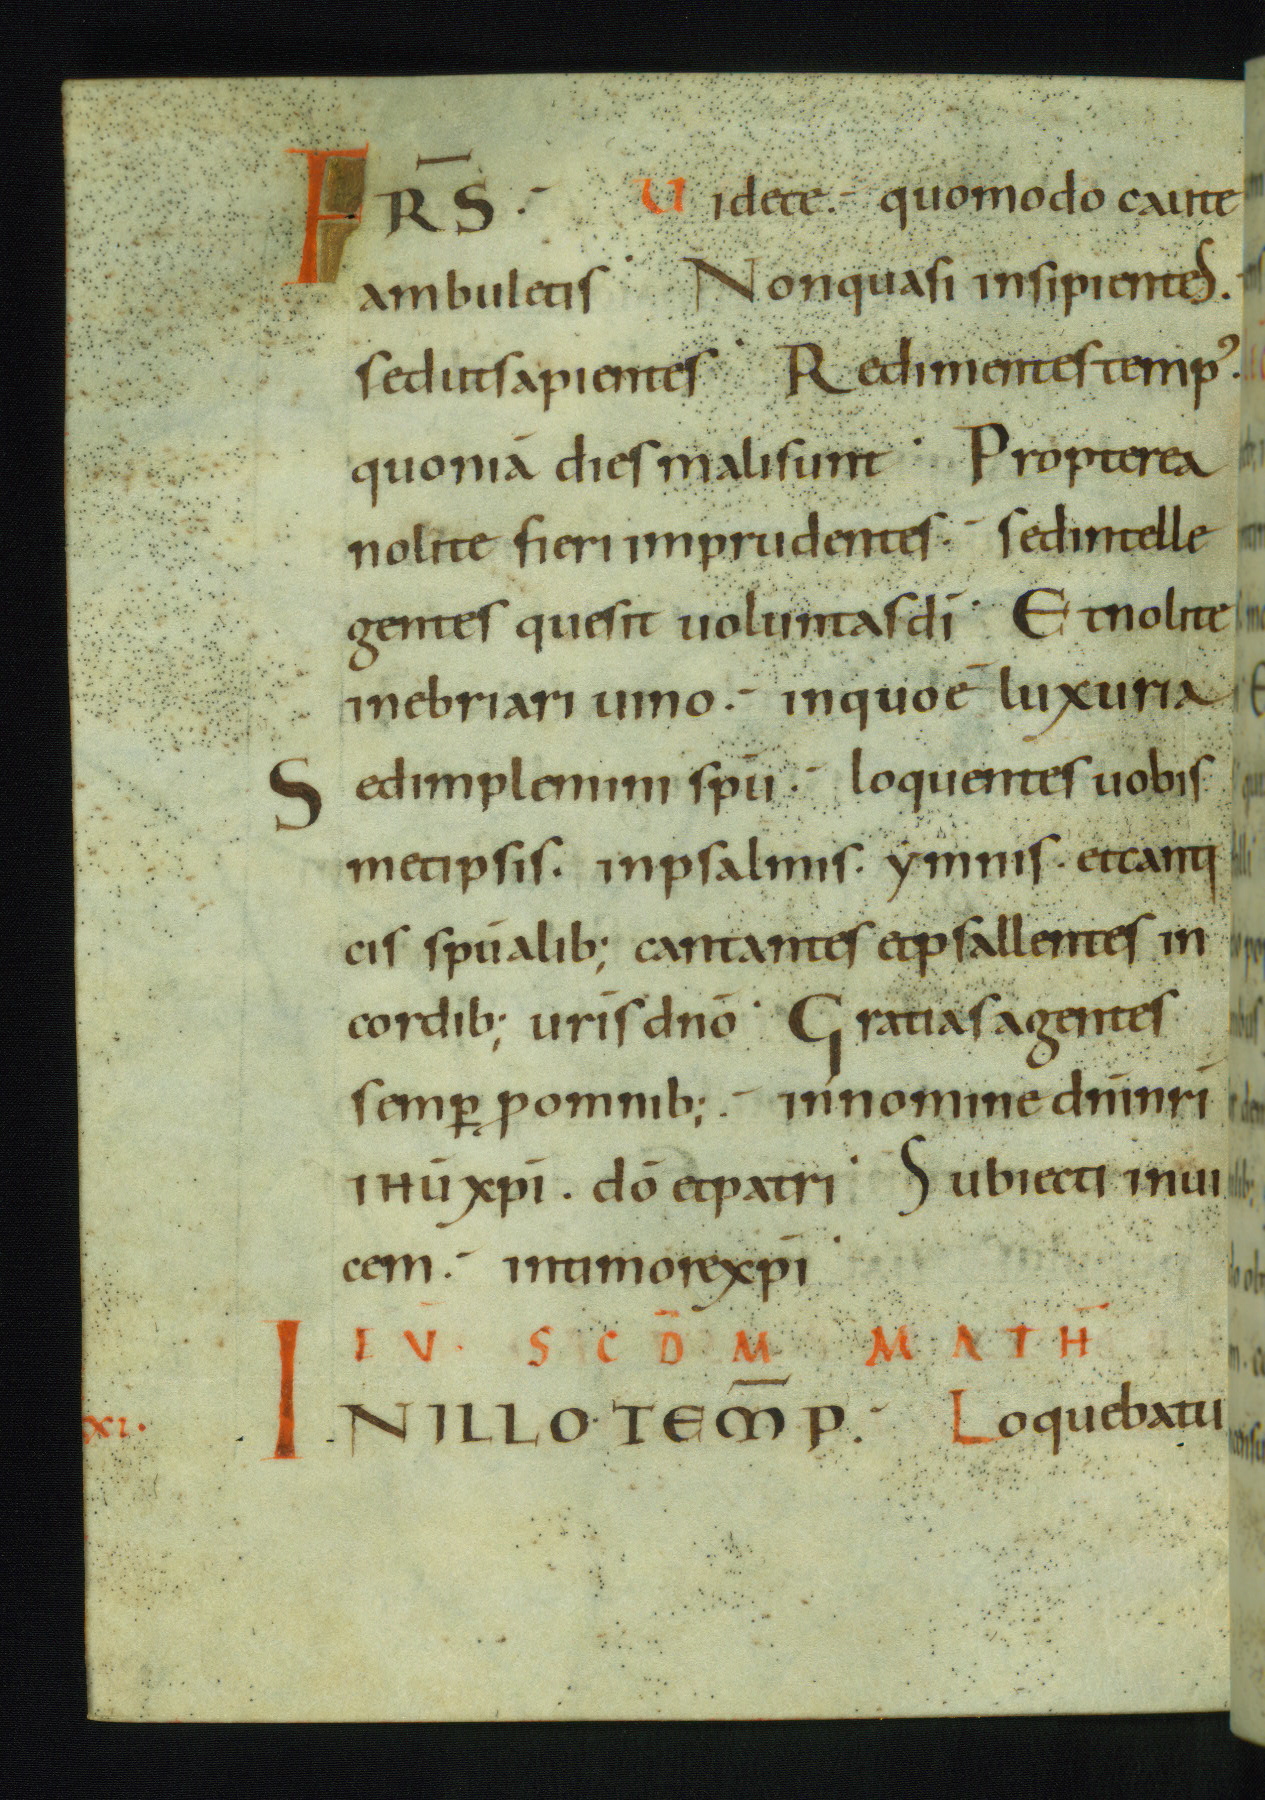 FRS̄ Uidete quomodo caute
ambuletis Nonquasi insipientes.
sedutsapientes Redimentestempꝰ.
quoniā dies malisunt Propterea
nolite fieri imprudentes sedintelle
gentes quesit uoluntasdī Etnolite
inebriari uino inquoē luxuria
Sedimplemini spū loquentes uobis
metipsis. inpsalmis. ẏmnis. etcanti
cis spūalib; cantantes etpsallentes in
cordib; urīs dnō Gratiasagentes
semꝑ ꝓomnib; innomine dnīnrī
IHŪxpī. dō etpatri Subiecti inui
cem intimorexpī
EV̄. SCD̄M MATH̄
xi. INILLO TEM̄P. Loquebatu